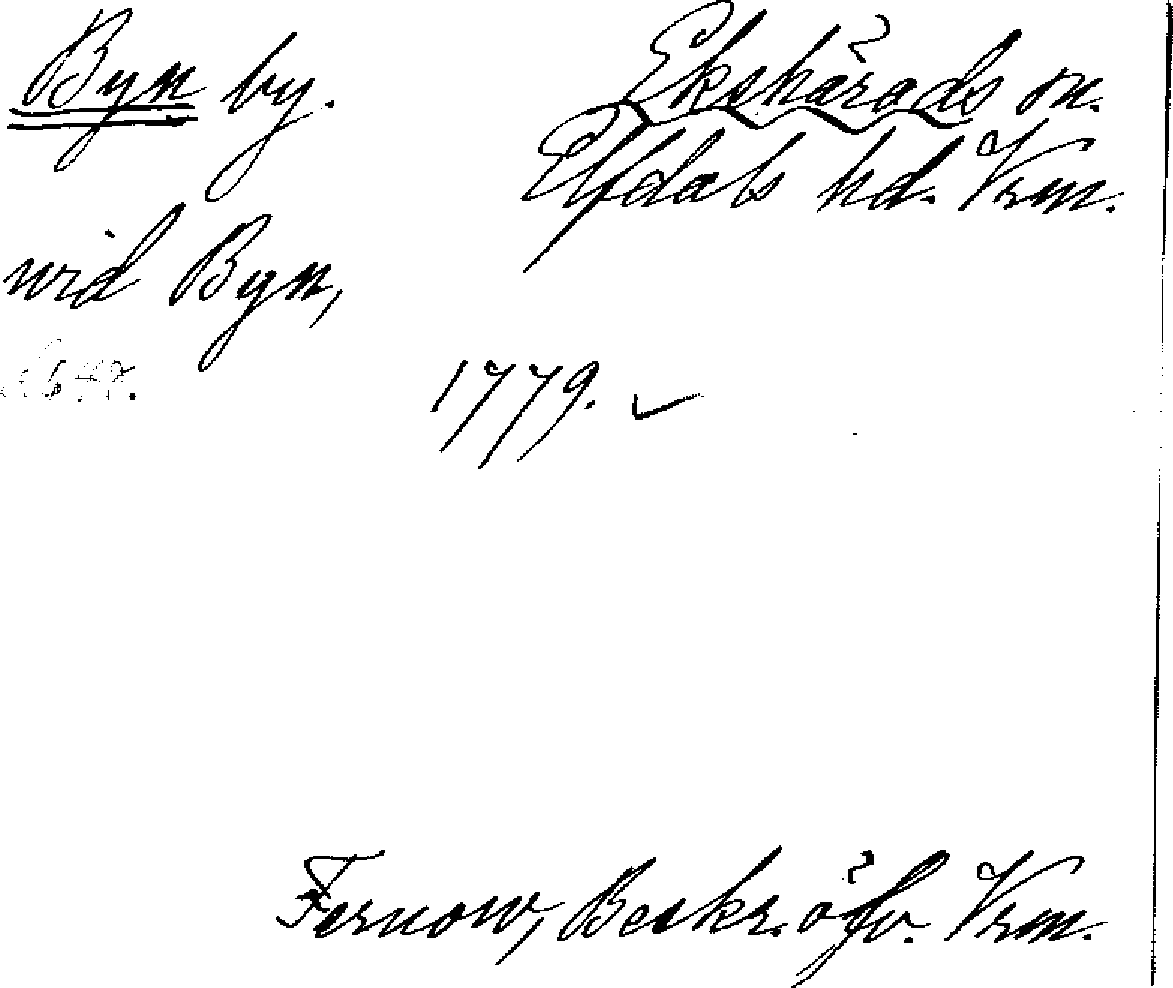 Byn by.
Ekshärads sn.
Elfdals hd. Vrm.
wid Byn,
1779. ✓
Fernow, Beskr. öfv. Vrm.